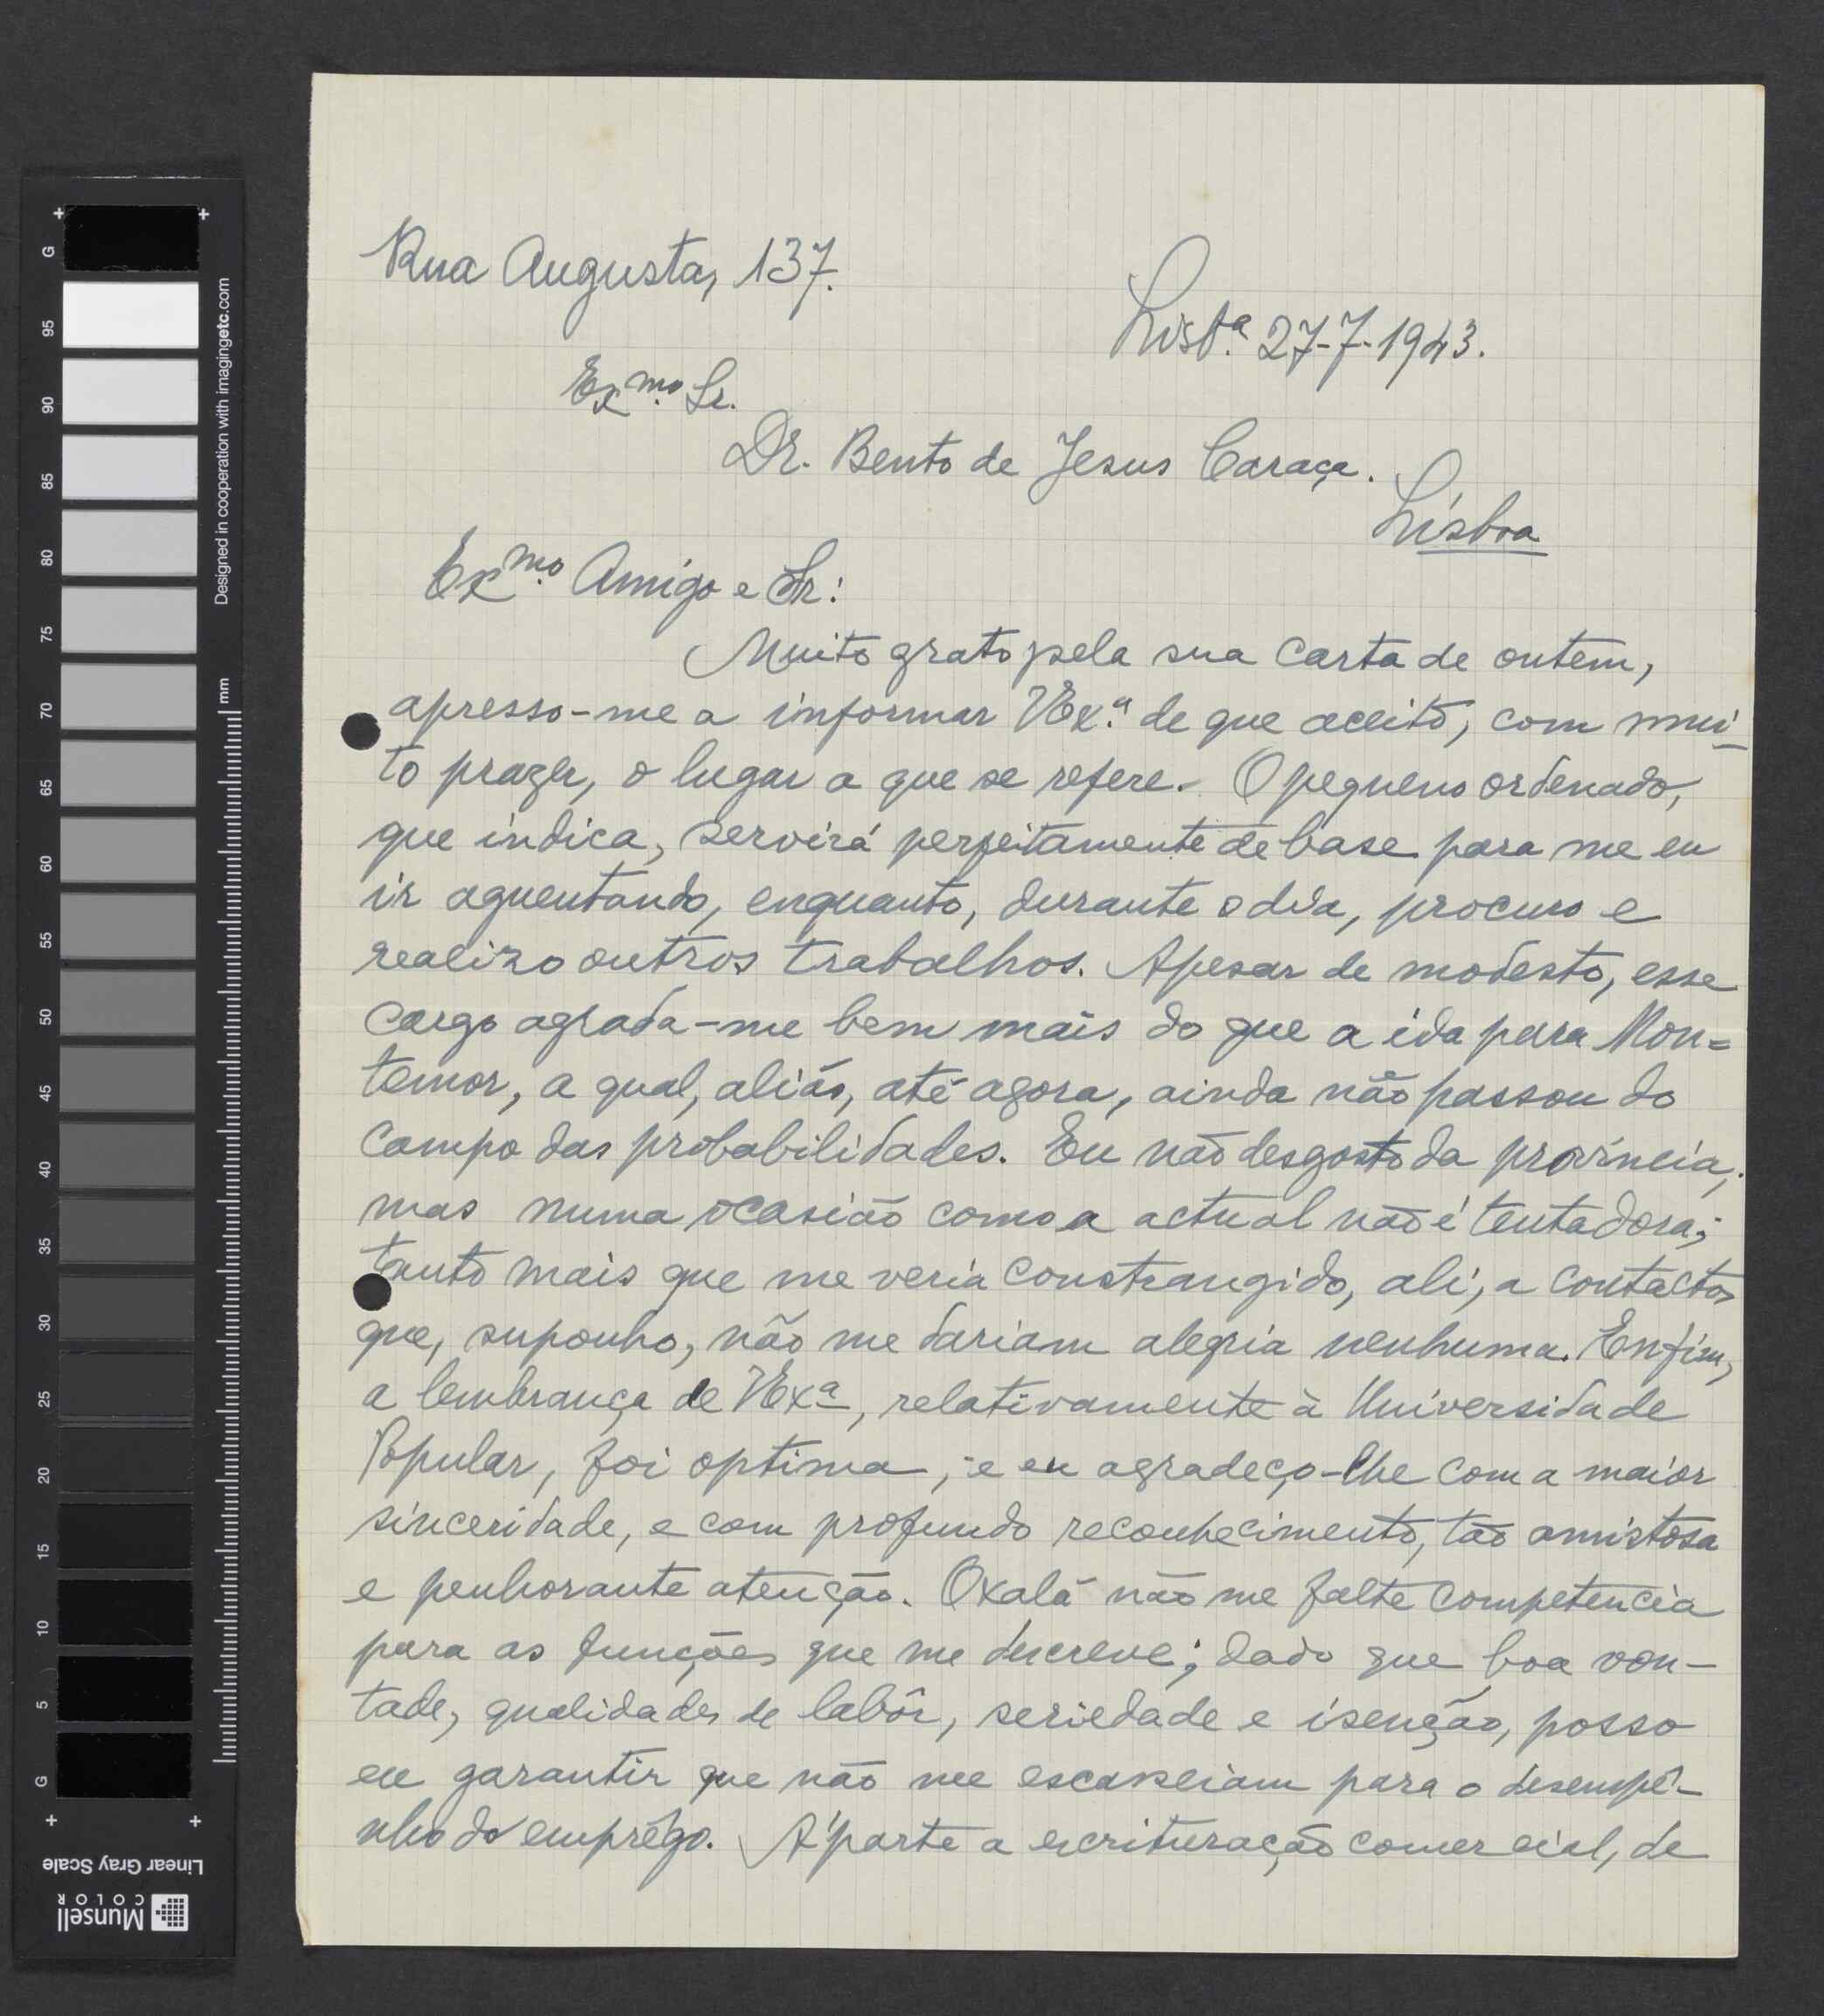 Rua Augusta, 137.
Lisb.ª 27-7-1943.
Ex.mo Sr.
Dr. Bento de Jesus Caraça.
Lisboa
Ex.mo Amigo e Sr:
Muito grato pela sua carta de ontem,
apresso-me a informar VEx.ª de que aceito, com mui-
to prazer, o lugar a que se refere. O pequeno ordenado,
que indica, servirá perfeitamente de base para me eu
ir aguentando, enquanto, durante o dia, procuro e
realizo outros trabalhos. Apesar de modesto, esse
cargo agrada-me bem mais do que a ida para Mon=
temor, a qual, aliás, até agora, ainda não passou do
campo das probabilidades. Eu não desgosto da província,
mas numa ocasião como a actual não é tentadora;
tanto mais que me veria constrangido, ali, a contactos
que, suponho, não me dariam alegria nenhuma. Enfim,
a lembrança de VExª, relativamente à Universidade
Popular, foi optima, e eu agradeço-lhe com a maior
sinceridade, e com profundo reconhecimento, tão amistosa
e penhorante atenção. Oxalá não me falte competencia
para as funções que me descreve; dado que boa von-
tade, qualidades de labôr, seriedade e isenção, posso
eu garantir que não me escasseiam para o desempê-
nho do emprêgo. Áparte a escrituração comercial, de
Designed in cooperation with imagingetc.com
mm
G 95 90 85 80 75 70 65 60 55 50 45 40 35 30 25 20 15 10 5 G
Linear Gray Scale
Munsell
COLOR